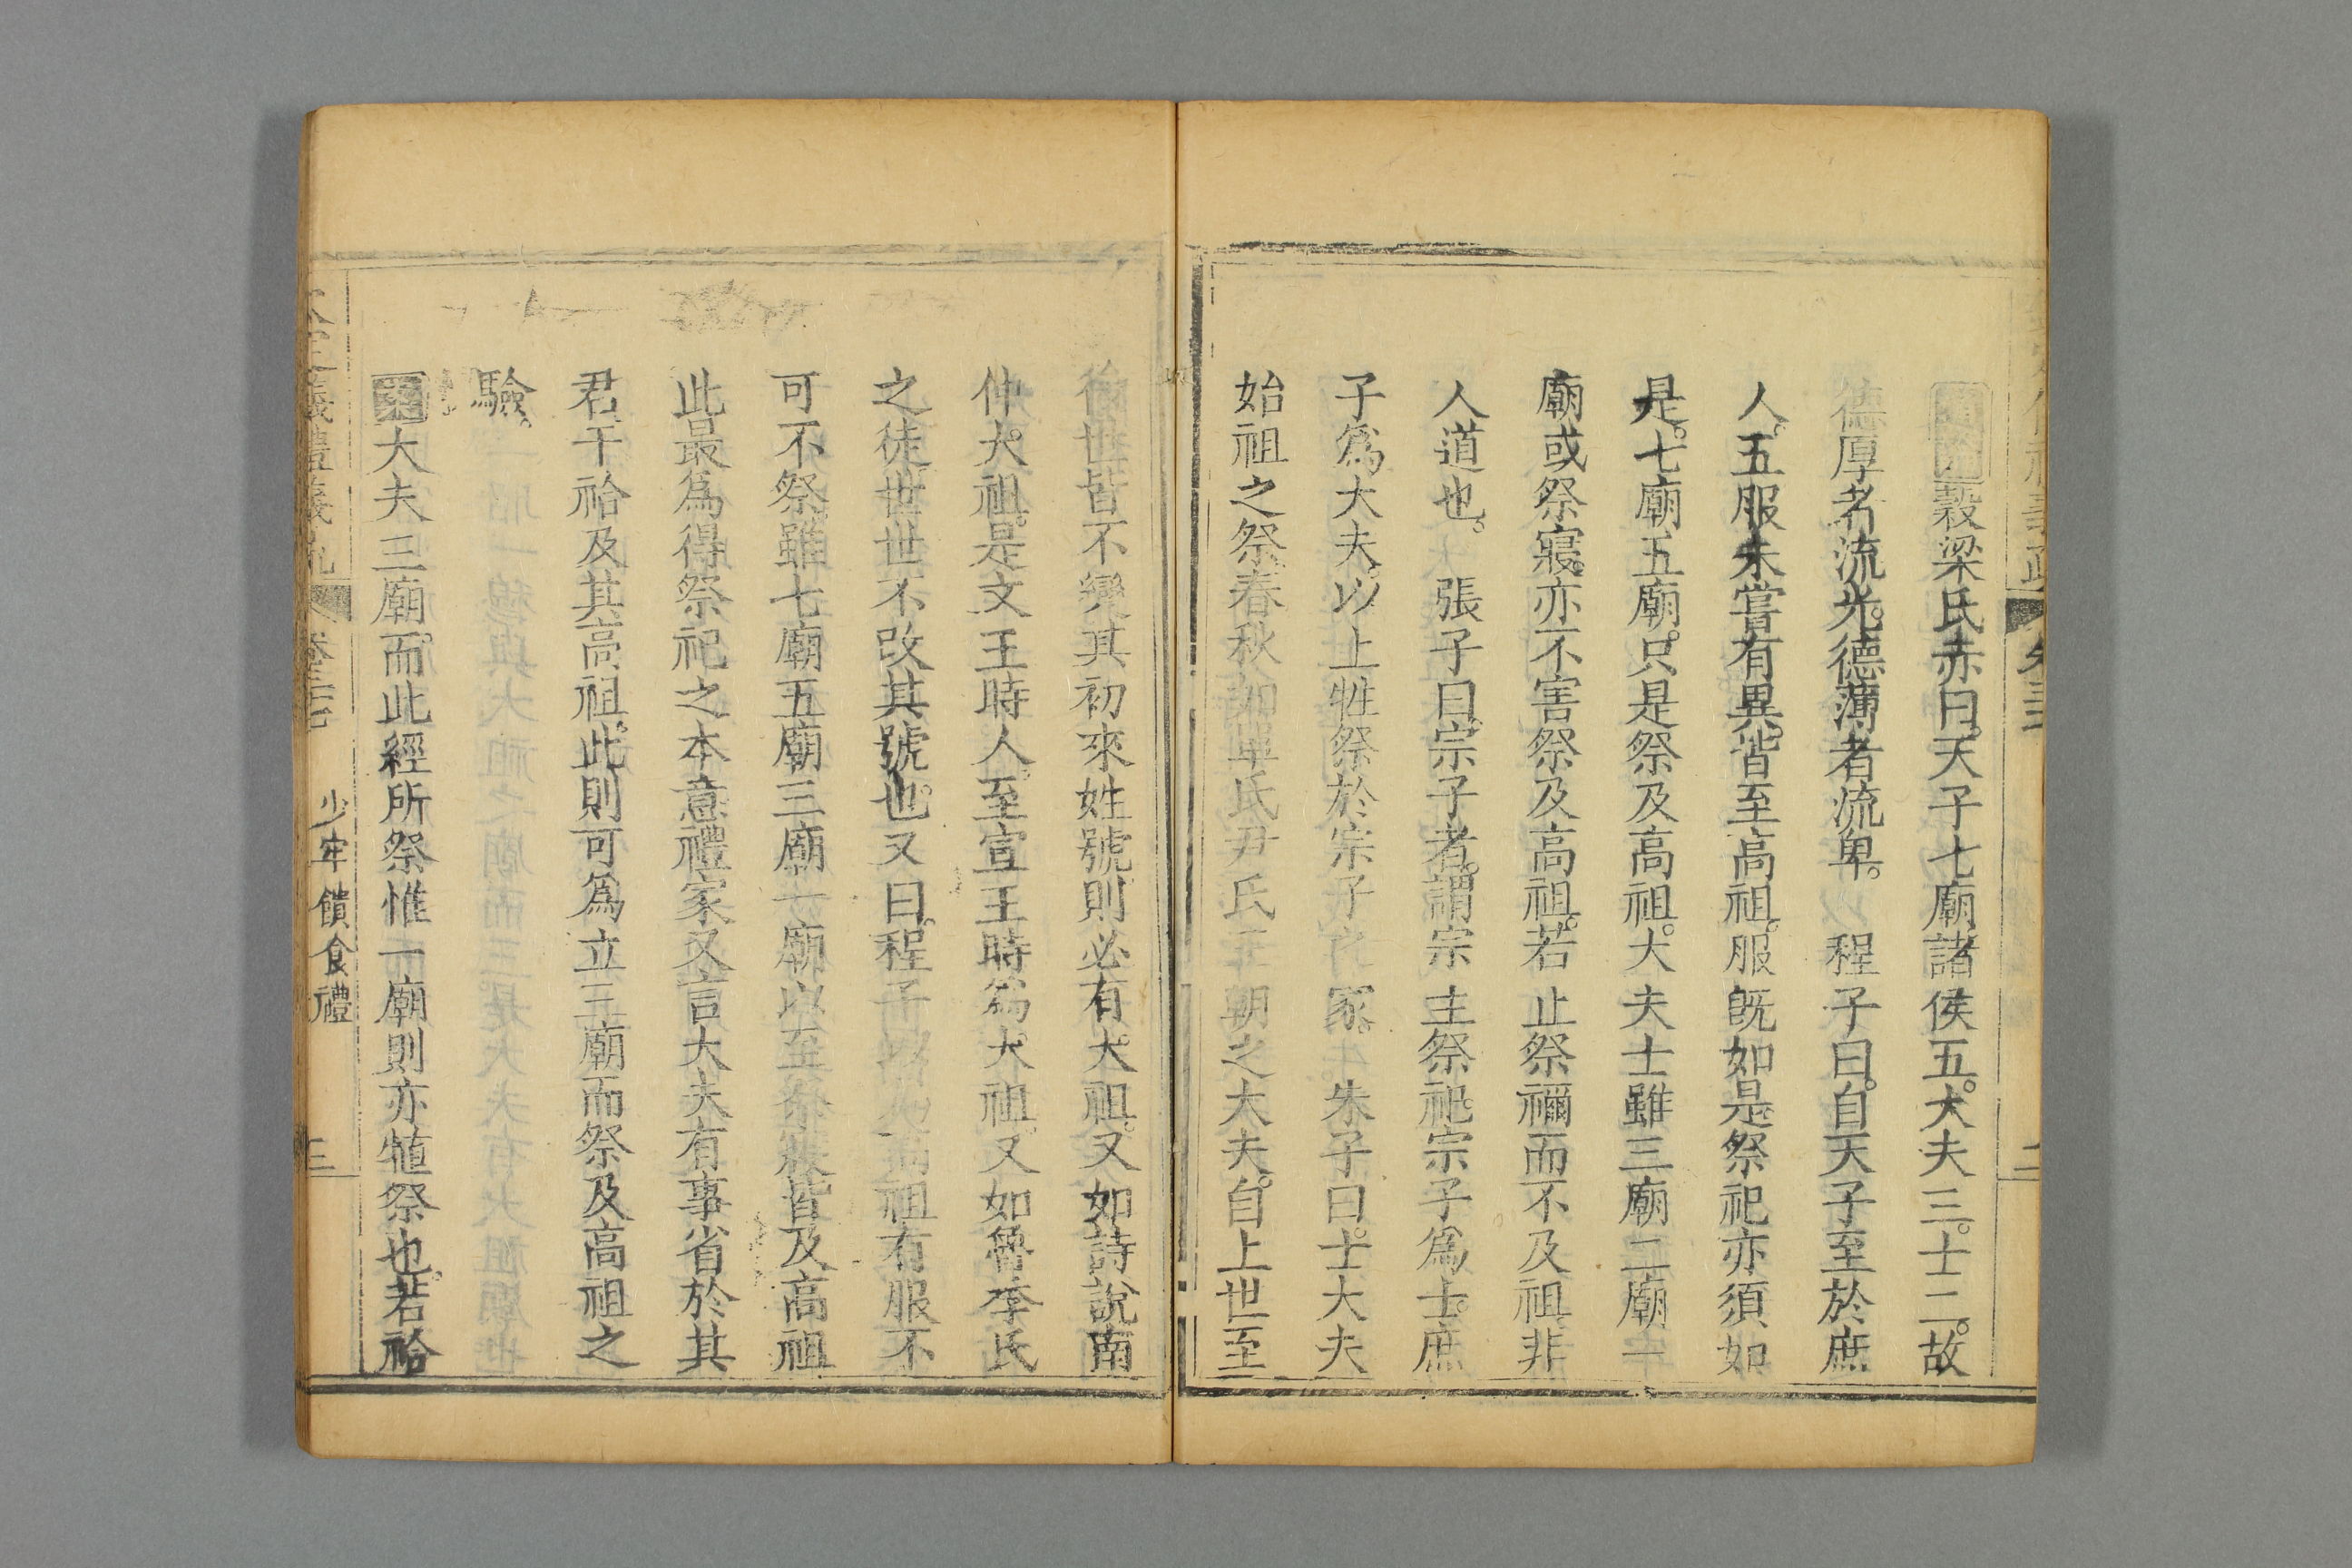 穀梁氏亦曰。天子七廟諸侯五。大夫三。士二。故
德厚者流光。德薄者流卑。程子曰。自天子至於庶
人。五服未嘗有異。皆至高祖。服旣如是祭祀亦須如
是。七廟五廟。只是祭及高祖。大夫士雖三廟二廟一
廟或祭寢。亦不害祭及高祖。若止祭禰而不及祖非
人道也。張子曰。宗子者。謂宗主祭祀。宗子爲士。庶
子爲大夫。以上牲祭於宗子之家。朱子曰。士大夫
始祖之祭。春秋如單氏尹氏王朝之大夫。自上世至
後世皆不變其初來姓號則必有大祖。又如詩說南
仲大祖。是文王時人。至宣王時爲大祖。又如魯季氏
之徒世世不改其號也。又曰。程子 高祖有服不
可不祭雖七廟五廟三廟一廟以至祭寢皆及高祖
此最爲得祭祀之本意禮家又言大夫有事省於其
君干祫及其高祖。此則可爲立三廟而祭及高祖之
驗。
案大夫三廟。而此經所祭惟一廟則亦犆祭也。若祫
欽定儀禮義疏 卷三十七 少牢饋食禮 三